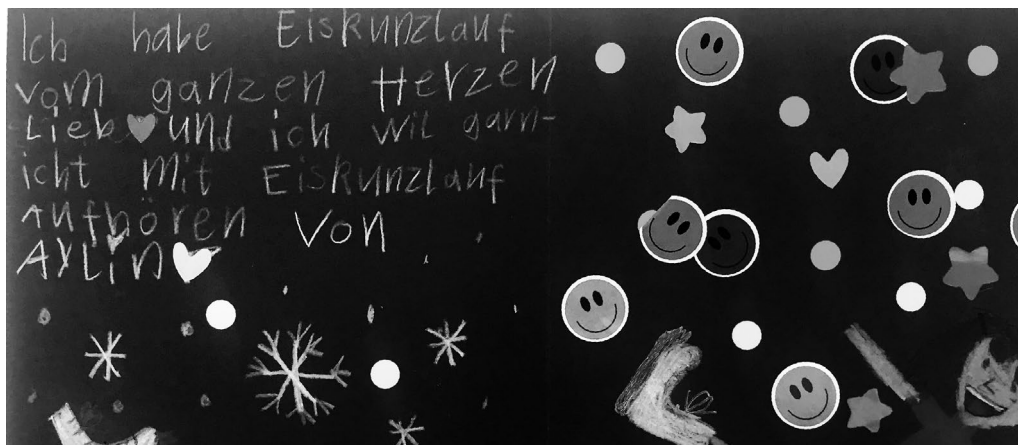 Ich habe Eiskunzlauf
vom ganzen Herzen
Lieb und ich wil garn-
icht mit Eiskunzlauf
Aufhören Von
Aylin